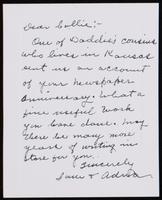 Dear Sallie:-
One of Daddie's cousins
who lives in Kansas
sent us an account
of your Newspaper
Anniversary. What a
fine useful work
you have done. May
there be many more
years of writing in
store for you.
Sincerely
& Adrian